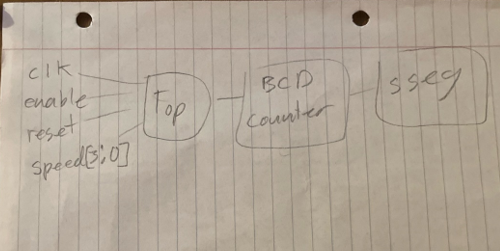 clk
enable
reset
speed[3:0]
Top
BCD
counter
sseg